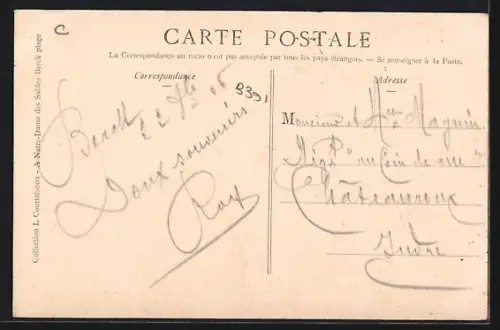 C
CARTE POSTALE
La Correspondance au recto n'est pas acceptée par tous les pays étrangers. — Se renseigner à la Poste.
Correspondance
Berck
22 7bre 06
Doux souvenirs
Roy
B391
Adresse
Monsieur et Mme Magnin
"au Coin de rue"
Châteauroux
Indre
Collection L. Courtolimon - A Notre-Dame des Sables Berck plage